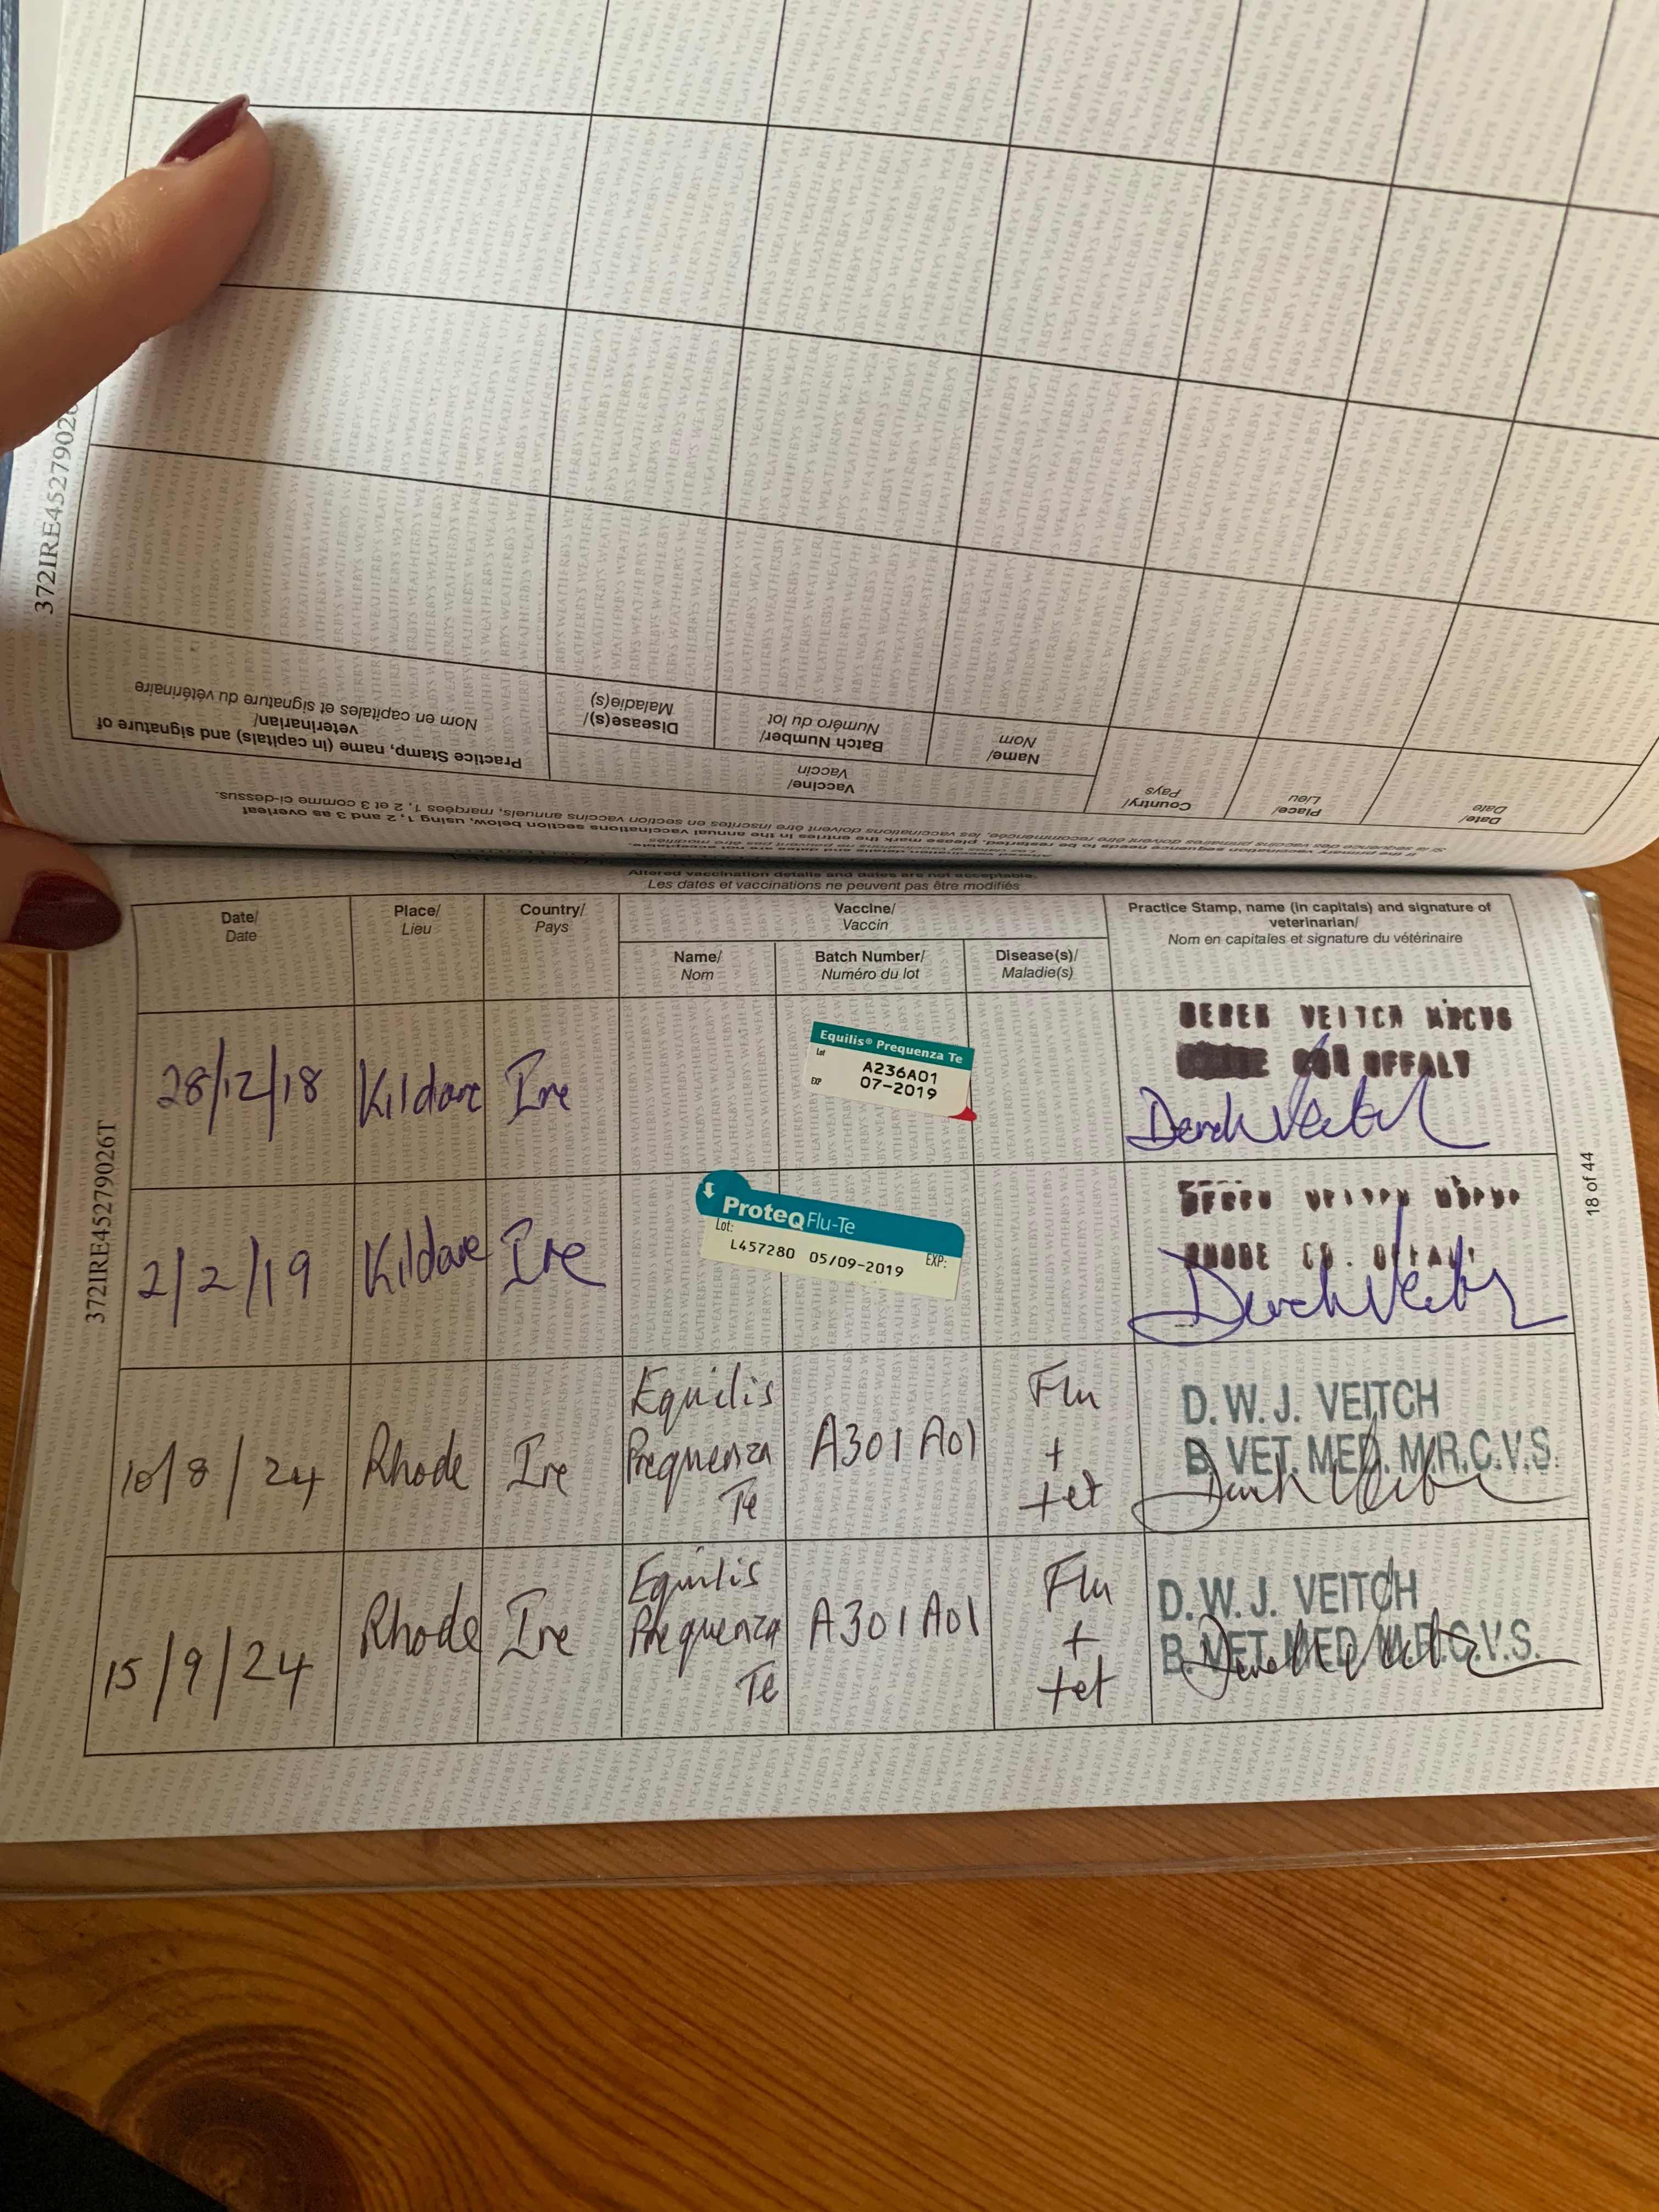 372IRE45279026
Practice Stamp, name (in capitals) and signature of
veterinarian/
Nom en capitales et signature du vétérinaire
Disease(s)/
Maladie(s)
Batch Number/
Numéro du lot
Name/
Nom
Vaccine/
Vaccin
Country/
Pays
Place/
Lieu
Date/
Date
If the primary vaccination sequence needs to be restarted, please mark the entries in the annual vaccinations section below, using 1, 2 and 3 as overleaf
Si la séquence des vaccins primaires doivent être recommencée, les vaccinations doivent être inscrites en section vaccins annuels, marquées 1, 2 et 3 comme ci-dessus.
Altered vaccination details and dates are not acceptable.
Les dates et vaccinations ne peuvent pas être modifiés
Altered vaccination details and dates are not acceptable.
Les dates et vaccinations ne peuvent pas être modifiés
Date/
Date
Place/
Lieu
Country/
Pays
Vaccine/
Vaccin
Name/
Nom
Batch Number/
Numéro du lot
Disease(s)/
Maladie(s)
Practice Stamp, name (in capitals) and signature of
veterinarian/
Nom en capitales et signature du vétérinaire
28/12/18
Kildare
Ire
Equilis® Prequenza Te
Lot
A236A01
EXP
07-2019
VEITCH
OFFALY
Derek Veitch
2/2/19
Kildare
Ire
ProteqFlu-Te
Lot:
EXP:
L457280 05/09-2019
RHODE CO. OFFALY
Derek Veitch
10/8/24
Rhode
Ire
Equilis
Prequenza
Te
A301A01
Flu
+
tet
D. W. J. VEITCH
B. VET. MED. M.R.C.V.S.
Derek Veitch
15/9/24
Rhode
Ire
Equilis
Prequenza
Te
A301A01
Flu
+
tet
D. W. J. VEITCH
B. VET. MED. M.R.C.V.S.
Derek Veitch
372IRE45279026T
18 of 44
WEATHERBYS